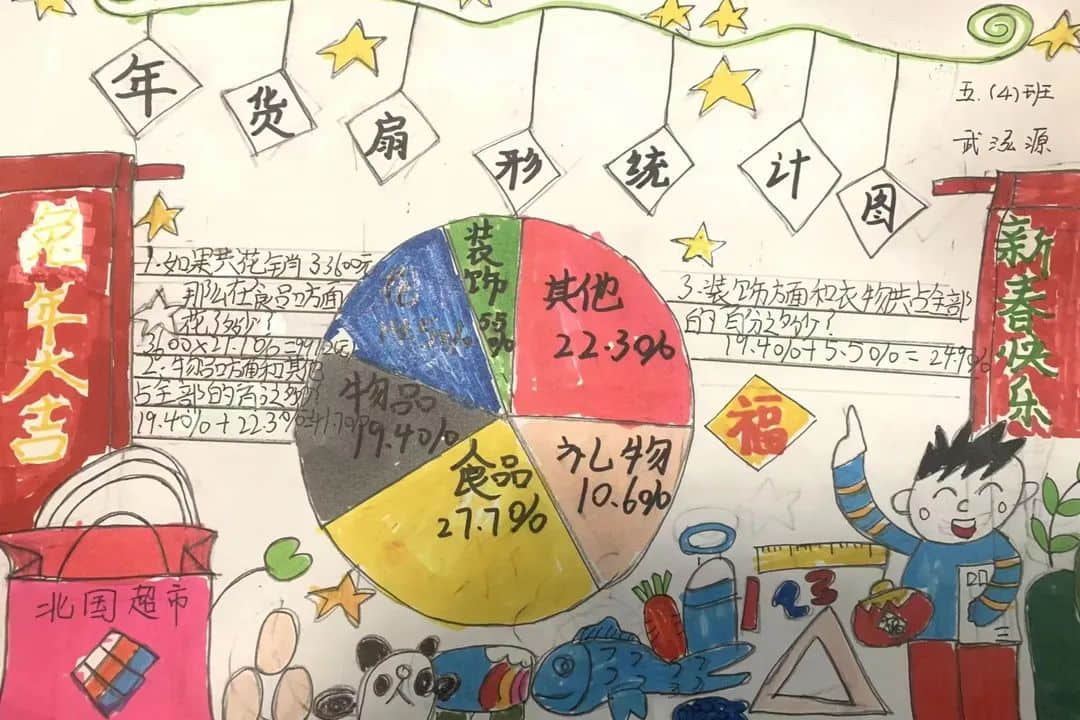 年货扇形统计图
五.(4)班
武涵源
兔年大吉
新春快乐
1.如果共花销33600元
那么在食品方面
花了多少?
2.物品方面和其他
占全部的百分之多少?
3.装饰方面和衣物共占全部
的百分之多少?
19.4%+5.5%=24.9%
装饰
5.5%
其他
22.3%
礼物
10.6%
食品
27.7%
物品
19.4%
福
北国超市
1 2 3